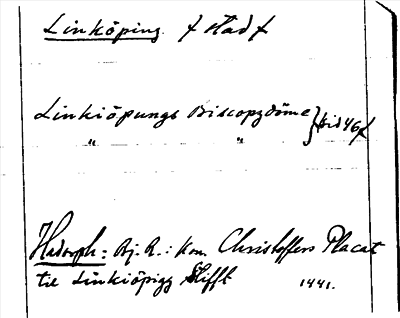 Linköping. / stad /
Linkiöpungs Biscopzdöme } sid 46 /
" "
Hadorph: Bj. R.: Kon. Christoffers Placat
til Linkiöpigz Stifft 1441.